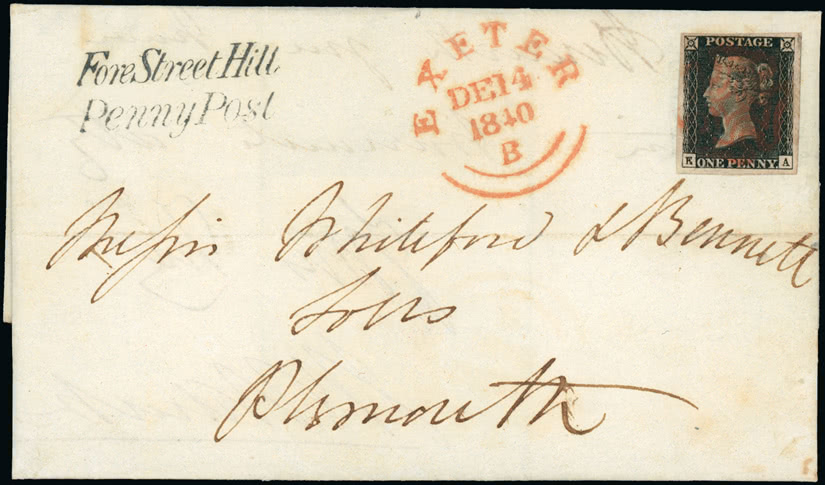 Fore Street Hill
Penny Post
EXETER
DE 14
1840
B
POSTAGE
K A
ONE PENNY
Messrs Whiteford & Bennett
Solrs
Plymouth